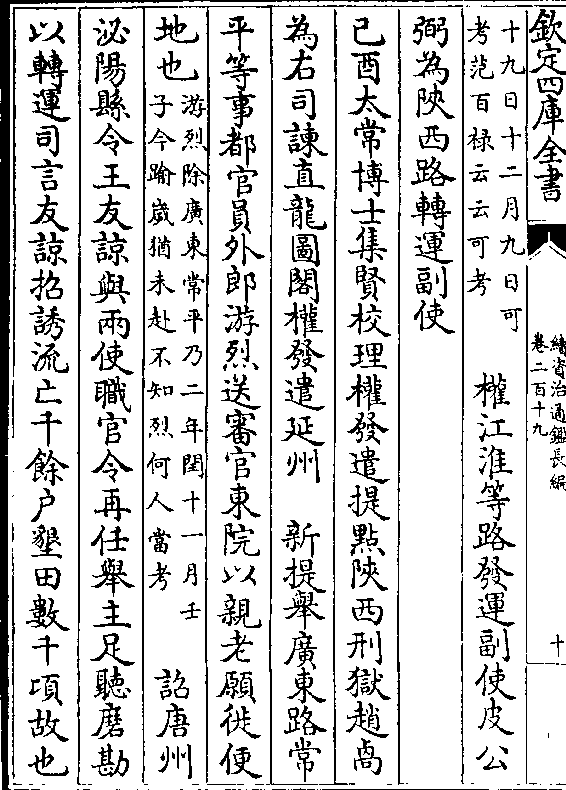 欽定四庫全書
續資治通鑑長編
卷二百十九
十
十九日十二月九日可
考范百禄云云可考
權江淮等路發運副使皮公
弼為陝西路轉運副使
己酉太常博士集賢校理權發遣提點陝西刑獄趙卨
為右司諫直龍圖閣權發遣延州 新提舉廣東路常
平等事都官員外郎游烈送審官東院以親老願徙便
地也
游烈除廣東常平乃二年閏十一月壬
子今踰歲猶未赴不知烈何人當考
詔唐州
泌陽縣令王友諒與兩使職官令再任舉主足聽磨勘
以轉運司言友諒招誘流亡千餘户墾田數千頃故也